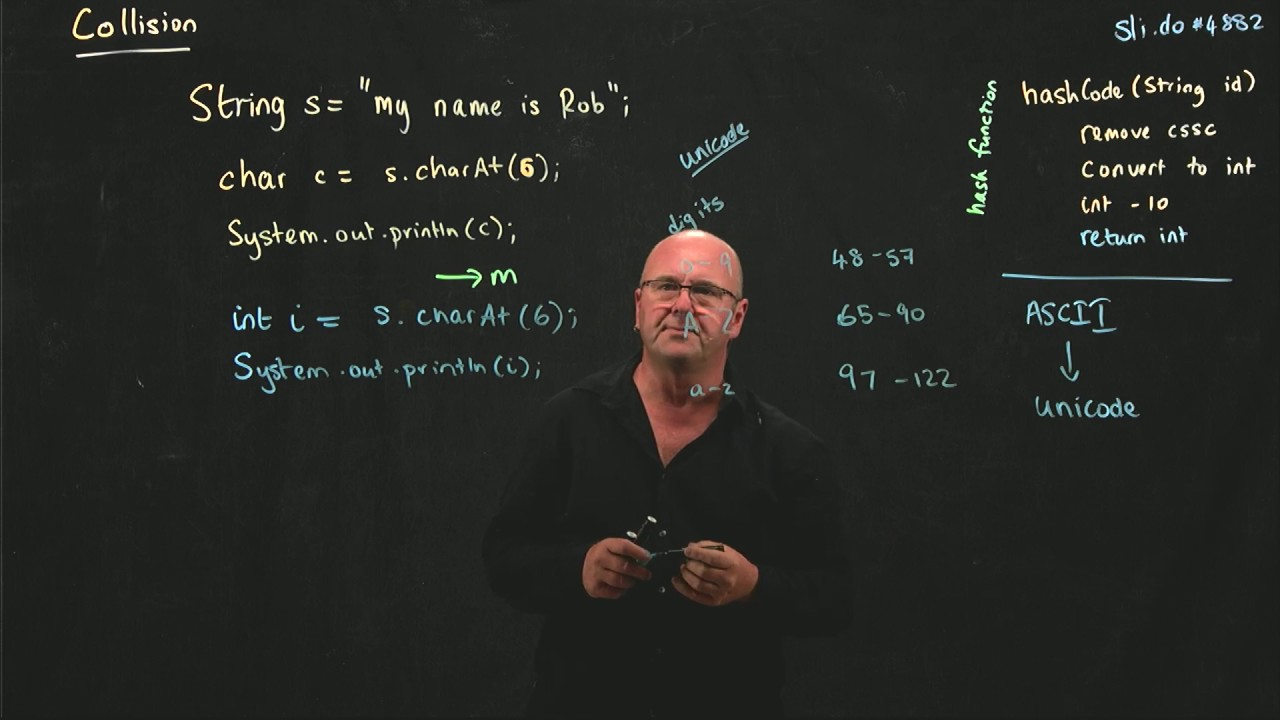 Collision
sli.do #4882
String s = "my name is Rob";
char c = s.charAt(6);
System.out.println(c);
→ m
int i = s.charAt(6);
System.out.println(i);
unicode
digits
0-9
48-57
A-Z
65-90
a-z
97-122
hash function
hashCode(String id)
remove cssc
Convert to int
int - 10
return int
ASCII
↓
Unicode